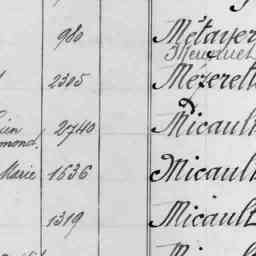 980 Métayer
Meusnet
2305 Mézerett
ien
2740 Micault
mond
Marie 1636 Micault
1319 Micault